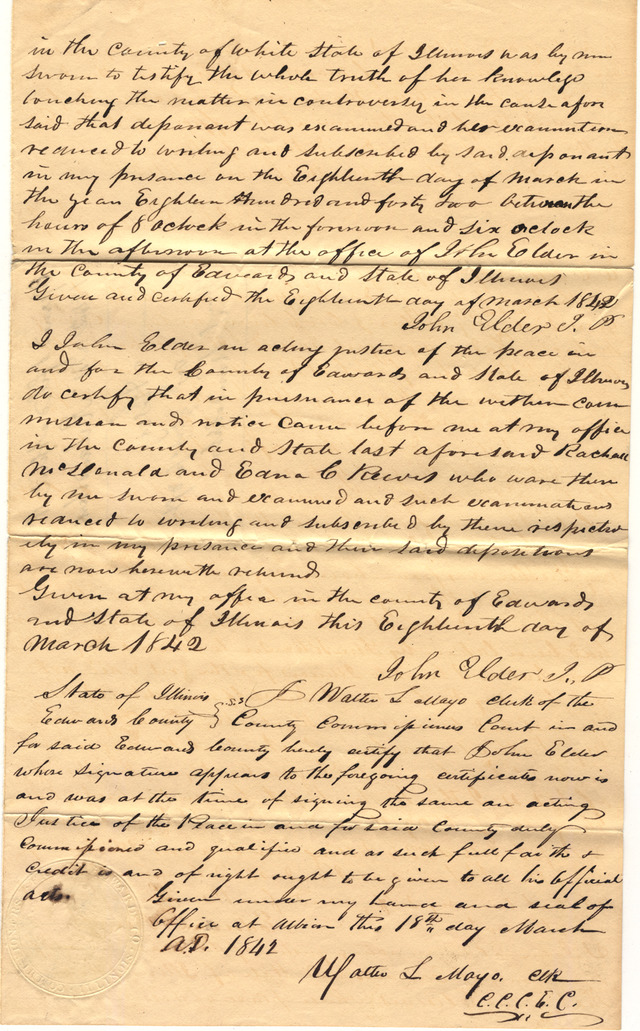 in the County of White State of Illinois was by me
sworn to testify the whole truth of her knowlege
touching the matter in controversy in the cause afore
said that deponant was examined and her examination
reduced to writing and subscribed by said deponant
in my presance on the Eighteenth day of march in
the year Eighteen Hundred and forty two between the
hours of 8 oclock in the forenoon and six oclock
in the afternoon at the office of John Elder in
the County of Edwards and State of Illinois
Given and certified the Eighteenth day of March 1842
John Elder J. P
I John Elder an acting justice of the peace in
and for the County of Edwards and State of Illinois
do certify that in pursuance of the within com
mission and notice came before me at my office
in the county and State last aforesaid Rachael
McDonald and Edna C Reeves who ware there
by me sworn and examined and such examinations
reduced to writing and subscribed by them respectiv
ely in my presance and their said depositions
are now herewith returnd
Given at my office in the county of Edwards
and State of Illinois this Eighteenth day of
March 1842
John Elder J. P
State of Illinois } S.S. I Walter L Mayo clerk of the
Edwards County } County Commissioners Court in and
for said Edwards County hereby certify that John Elder
whose signature appears to the foregoing certificates now is
and was at the time of signing the same an acting
Justice of the Peace in and for said County duly
commissioned and qualified and as such full faith &
credit is and of right ought to be given to all his official
acts. Given under my hand and seal of
office at Albion this 18th day March
A.D. 1842
Walter L Mayo. clk
C.C.C.E.C.